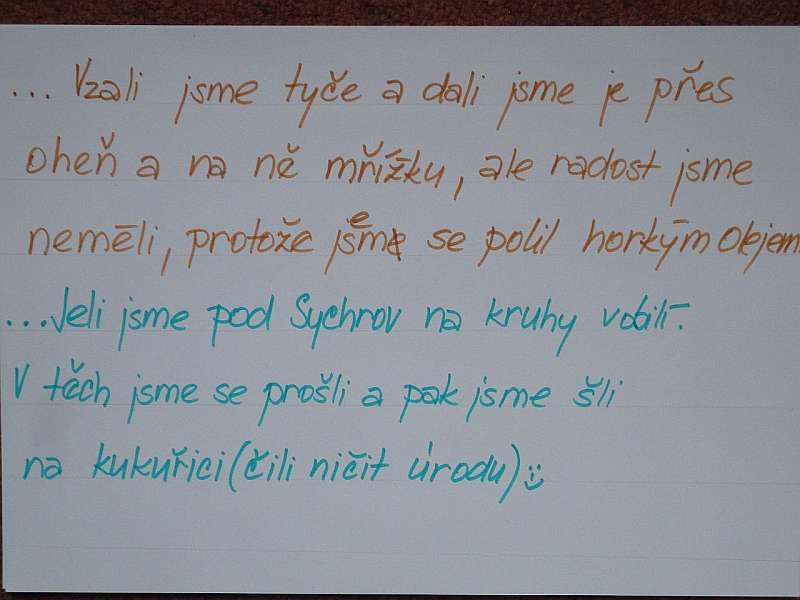 ... Vzali jsme tyče a dali jsme je přes
oheň a na ně mřížku, ale radost jsme
neměli, protože jsem se polil horkým olejem.
...Jeli jsme pod Sychrov na kruhy v obilí.
V těch jsme se prošli a pak jsme šli
na kukuřici (čili ničit úrodu) :)